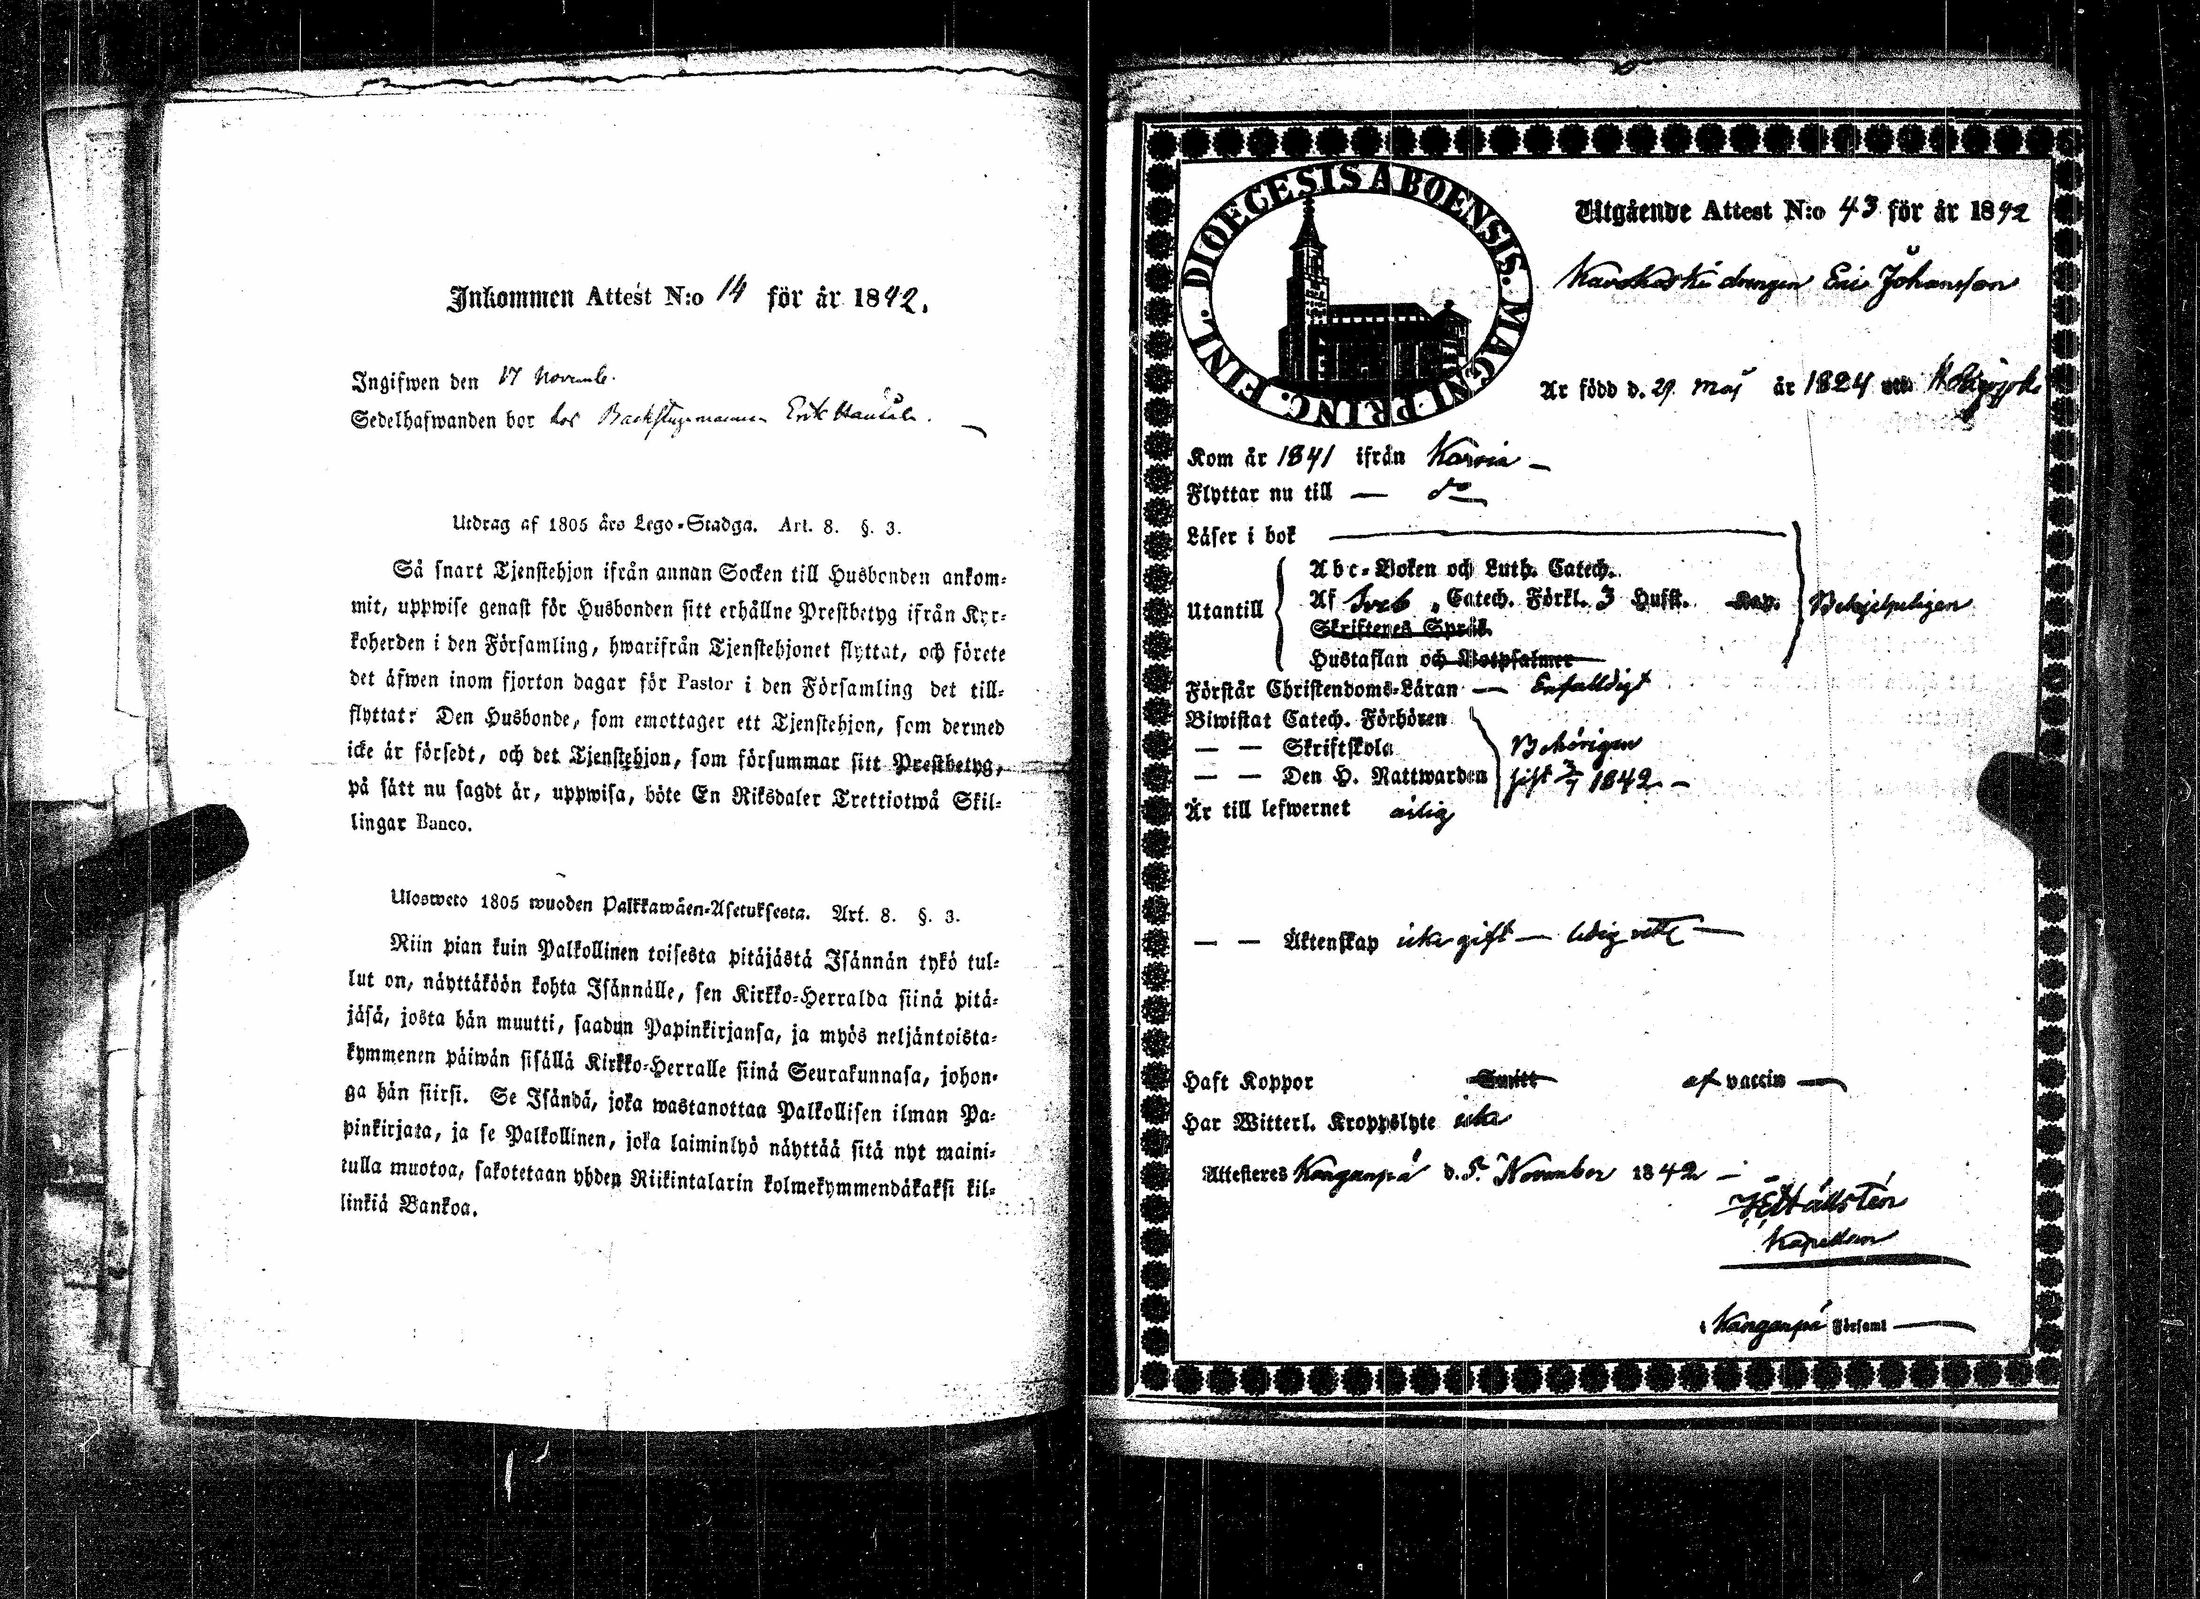 Inkommen Attest N:o 14 för år 1842.
Ingifwen den 17 Novemb.
Sedelhafwanden bor hos Backstugumannen Erik
Utdrag af 1805 års Lego-Stadga. Art. 8. §. 3.
Så snart Tjenstehjon ifrån annan Socken till Husbonden ankom-
mit, uppwise genast för Husbonden sitt erhållne Prestbetyg ifrån Kyr-
koherden i den Församling, hwarifrån Tjenstehjonet flyttat, och förete
det äfwen inom fjorton dagar för Pastor i den Församling det till-
flyttat: Den Husbonde, som emottager ett Tjenstehjon, som dermed
icke är försedt, och det Tjenstehjon, som försummar sitt Prestbetyg,
på sätt nu sagdt är, uppwisa, böte En Riksdaler Trettiotwå Skil-
lingar Banco.
Ulosweto 1805 wuoden Palkkawäen-Asetuksesta. Art. 8. §. 3.
Niin pian kuin Palkollinen toisesta pitäjästä Isännän tykö tul-
lut on, näyttäköön kohta Isännälle, sen Kirkko-Herralda siinä pitä-
jäsä, josta hän muutti, saadun Papinkirjansa, ja myös neljäntoista-
kymmenen päiwän sisällä Kirkko-Herralle siinä Seurakunnasa, johon-
ga hän siirsi. Se Isändä, joka wastanottaa Palkollisen ilman Pa-
pinkirjata, ja se Palkollinen, joka laiminlyö näyttää sitä nyt maini-
tulla muotoa, sakotetaan yhden Riikintalarin kolmekymmendäkaksi kil-
linkiä Bankoa.
DIOECESIS ABOENSIS. MAGNI PRINC. FINL.
Utgående Attest N:o 43 för år 1842
drengen Eric Johansson
Är född d. 29 Maj år 1824
Kom år 1841 ifrån Karvia
Flyttar nu till — do
Läser i bok
Abc-Boken och Luth. Catech.
Utantill Af Sveb. Catech. Förkl. 3 Hufst. Kap. Behjelpeligen
Skriftenes Språk
Hustaflan och Botpsalmer
Förstår Christendoms-Läran — Enfalldigt
Biwistat Catech. Förhören
— — Skriftskola Behörigen
— — Den H. Nattwarden sist 3/7 1842 —
Är till lefwernet ärlig
— — Äktenskap icke gift — ledig
Haft Koppor Smitt af vaccin
Har Witterl. Kroppslyte icke
Attesteres Kanganpä d. 5 November 1842 —
Hällsten
Kapellan
i Kanganpä Församl